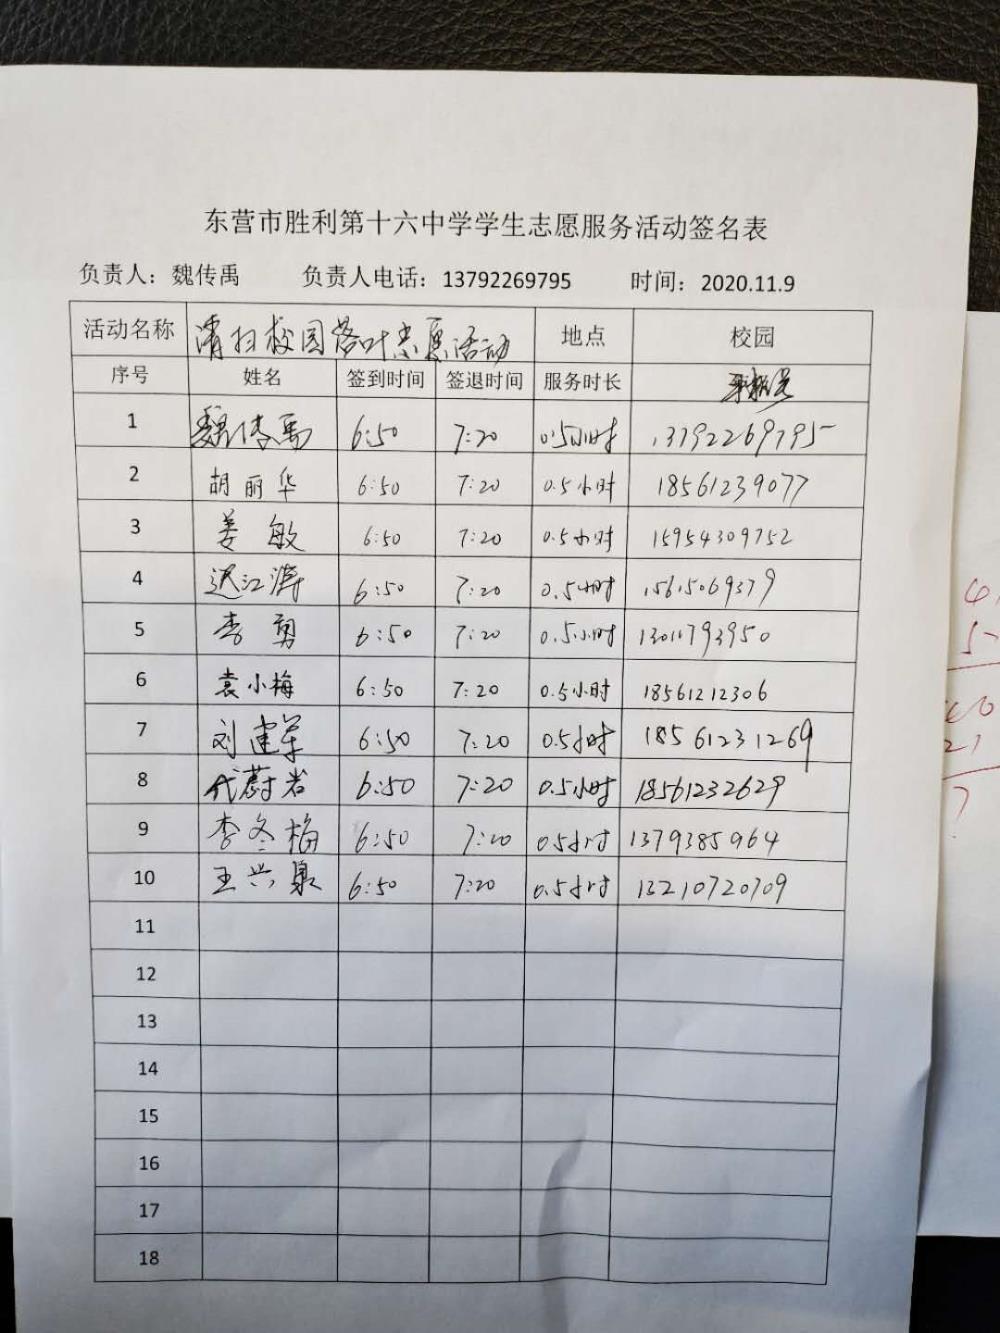 东营市胜利第十六中学学生志愿服务活动签名表
负责人：魏传禹 负责人电话：13792269795 时间：2020.11.9
活动名称 清扫校园落叶志愿活动 地点 校园
序号 姓名 签到时间 签退时间 服务时长
1 魏传禹 6:50 7:20 0.5小时 13792269795
2 胡丽华 6:50 7:20 0.5小时 18561239077
3 姜敏 6:50 7:20 0.5小时 15954309752
4 迟江涛 6:50 7:20 0.5小时 15615069379
5 李勇 6:50 7:20 0.5小时 13011793950
6 袁小梅 6:50 7:20 0.5小时 18561212306
7 刘建军 6:50 7:20 0.5小时 18561231269
8 代蔚岩 6:50 7:20 0.5小时 18561232629
9 李冬梅 6:50 7:20 0.5小时 1379385964
10 王兴泉 6:50 7:20 0.5小时 13210720709
11
12
13
14
15
16
17
18